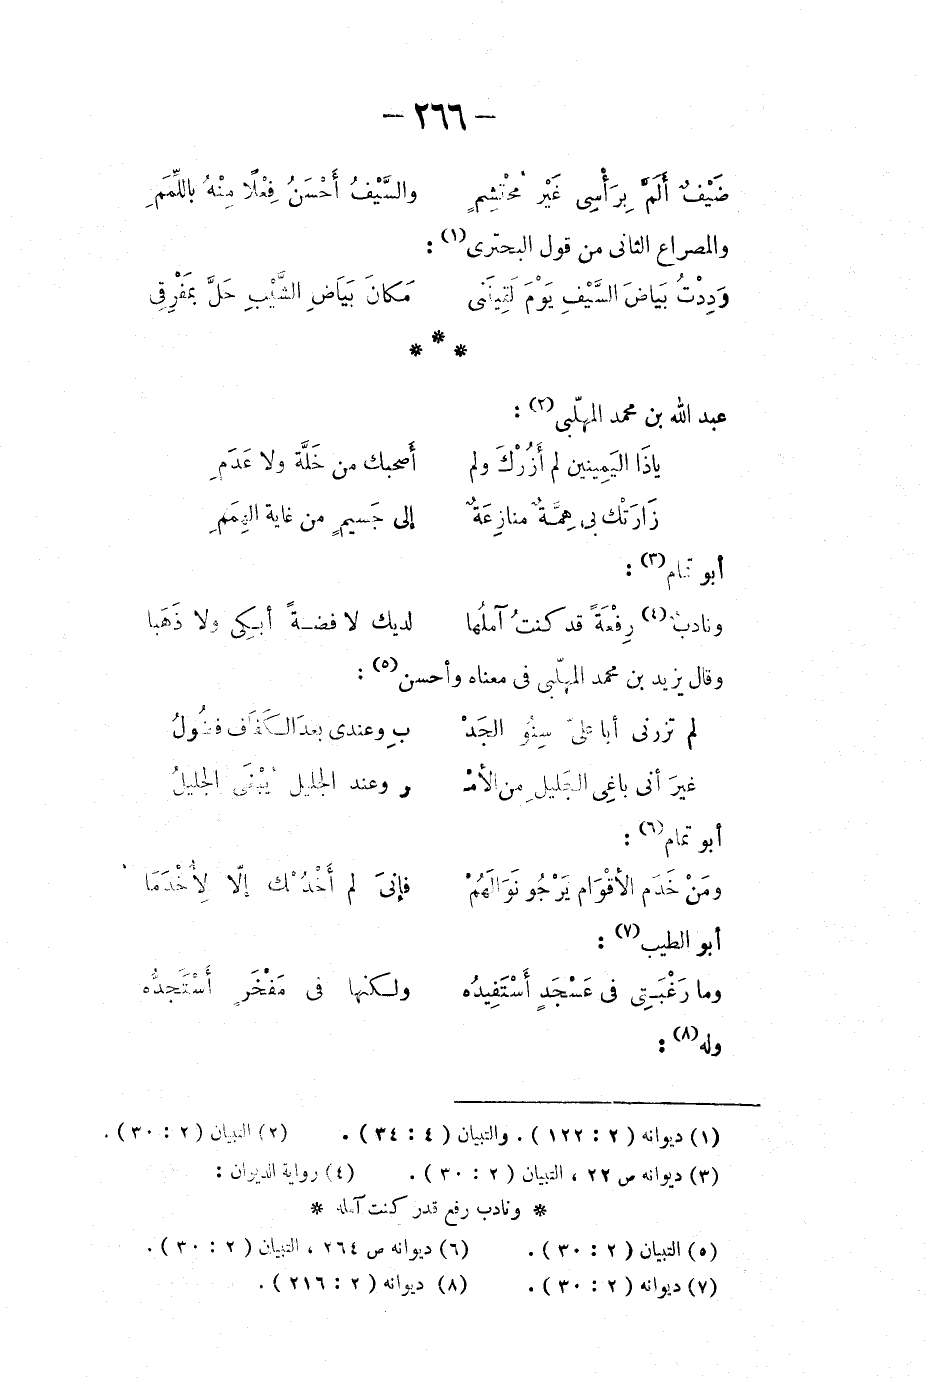 — ٢٦٦ —
ضَيْفٌ أَلَمَّ بِرَأْسِى غَيْرَ مُحْتَشِمٍ والسَّيْفُ أَحْسَنُ فِعْلًا مِنْهُ بِاللِّمَمِ
والمصراع الثانى من قول البحترى(١) :
وَدِدْتُ بَيَاضَ السَّيْفِ يَوْمَ لَقِينَنِى مَكانَ بَيَاضِ الشَّيْبِ حَلَّ بِمَفْرِقِى
* * *
عبد الله بن محمد المهلّبى(٢) :
ياذَا اليَمِينين لم أَزُرْكَ ولم أصحبك من خَلَّة ولا عَدَمِ
زَارَتْك بى هِمَّةٌ منازِعَةٌ إلى جَسيمٍ من غاية الهِمَمِ
أبو تمام(٣) :
ونادبٌ(٤) رِفْعَةً قد كنتُ آملُها لديك لا فضةً أبكى ولا ذَهَبا
وقال يزيد بن محمد المهلّبى فى معناه وأحسن(٥) :
لم تزرنى أبا علىّ سِنُو الجَدْ بِ وعندى بعدَ الكَفَاف فضُولُ
غيرَ أنى باغِى الجَليلِ من الأمْـ ر وعند الجليل يُبْغَى الجليلُ
أبو تمام(٦) :
ومَنْ خَدَم الأقْوَام يَرْجُو نَوَالَهُمْ فإنىَ لم أَخْدُمْك إلّا لِأُخْدَمَا
أبو الطيب(٧) :
وما رَغْبَتِى فى عَسْجَدٍ أَسْتَفِيدُه ولكنها فى مَفْخَرٍ أَسْتَجِدُّه
وله(٨) :
(١) ديوانه ( ٢ : ١٢٢ ) . والتبيان ( ٤ : ٣٤ ) . (٢) التبيان ( ٢ : ٣٠ ) .
(٣) ديوانه ص ٢٢ ، التبيان ( ٢ : ٣٠ ) . (٤) رواية الديوان :
* ونادب رفع قدر كنت آمله *
(٥) التبيان ( ٢ : ٣٠ ) . (٦) ديوانه ص ٢٦٤ ، التبيان ( ٢ : ٣٠ ) .
(٧) ديوانه ( ٢ : ٣٠ ) . (٨) ديوانه ( ٢ : ٢١٦ ) .